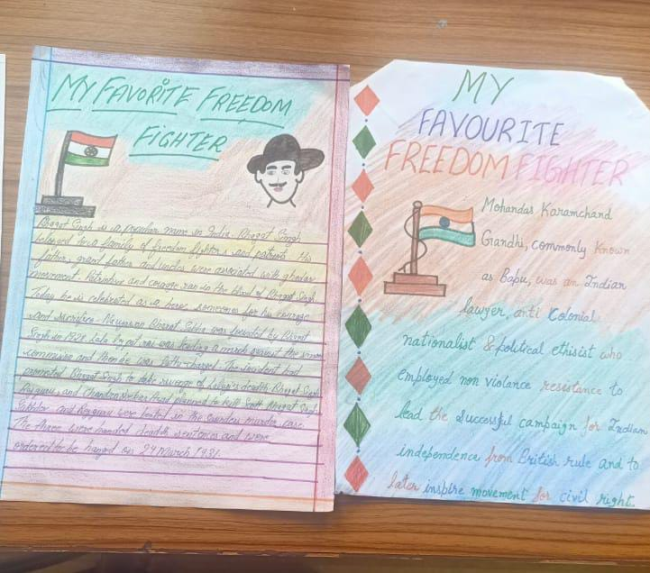 MY FAVORITE FREEDOM
FIGHTER
Bhagat Singh is a popular man in India. Bhagat Singh
belonged to a family of freedom fighters and patriots. His
father, grand father and uncles were associated with ghadar
movement. Patriotism and courage ran in the blood of Bhagat Singh.
Today he is celebrated as a hero, for his courage
and sacrifice. Bharat Sabha was founded by Bhagat
Singh in Lala Lajpat rai was leading a march against the simon
commission and there he was The incident had
Bhagat Singh to take revenge of death. Bhagat Singh
and Chandrashekhar Azad planned to kill Bhagat Singh
and were in the murder case.
The three were death sentence and were
ordered to be hanged on 24 March 1931.
MY
FAVOURITE
FREEDOM FIGHTER
Mohandas Karamchand
Gandhi, commonly known
as Bapu, was an Indian
lawyer, anti Colonial
nationalist & political ethisist who
employed non violance resestance to
lead the successful campaign for Indian
independence from British rule and to
later inspire movement for civil right.